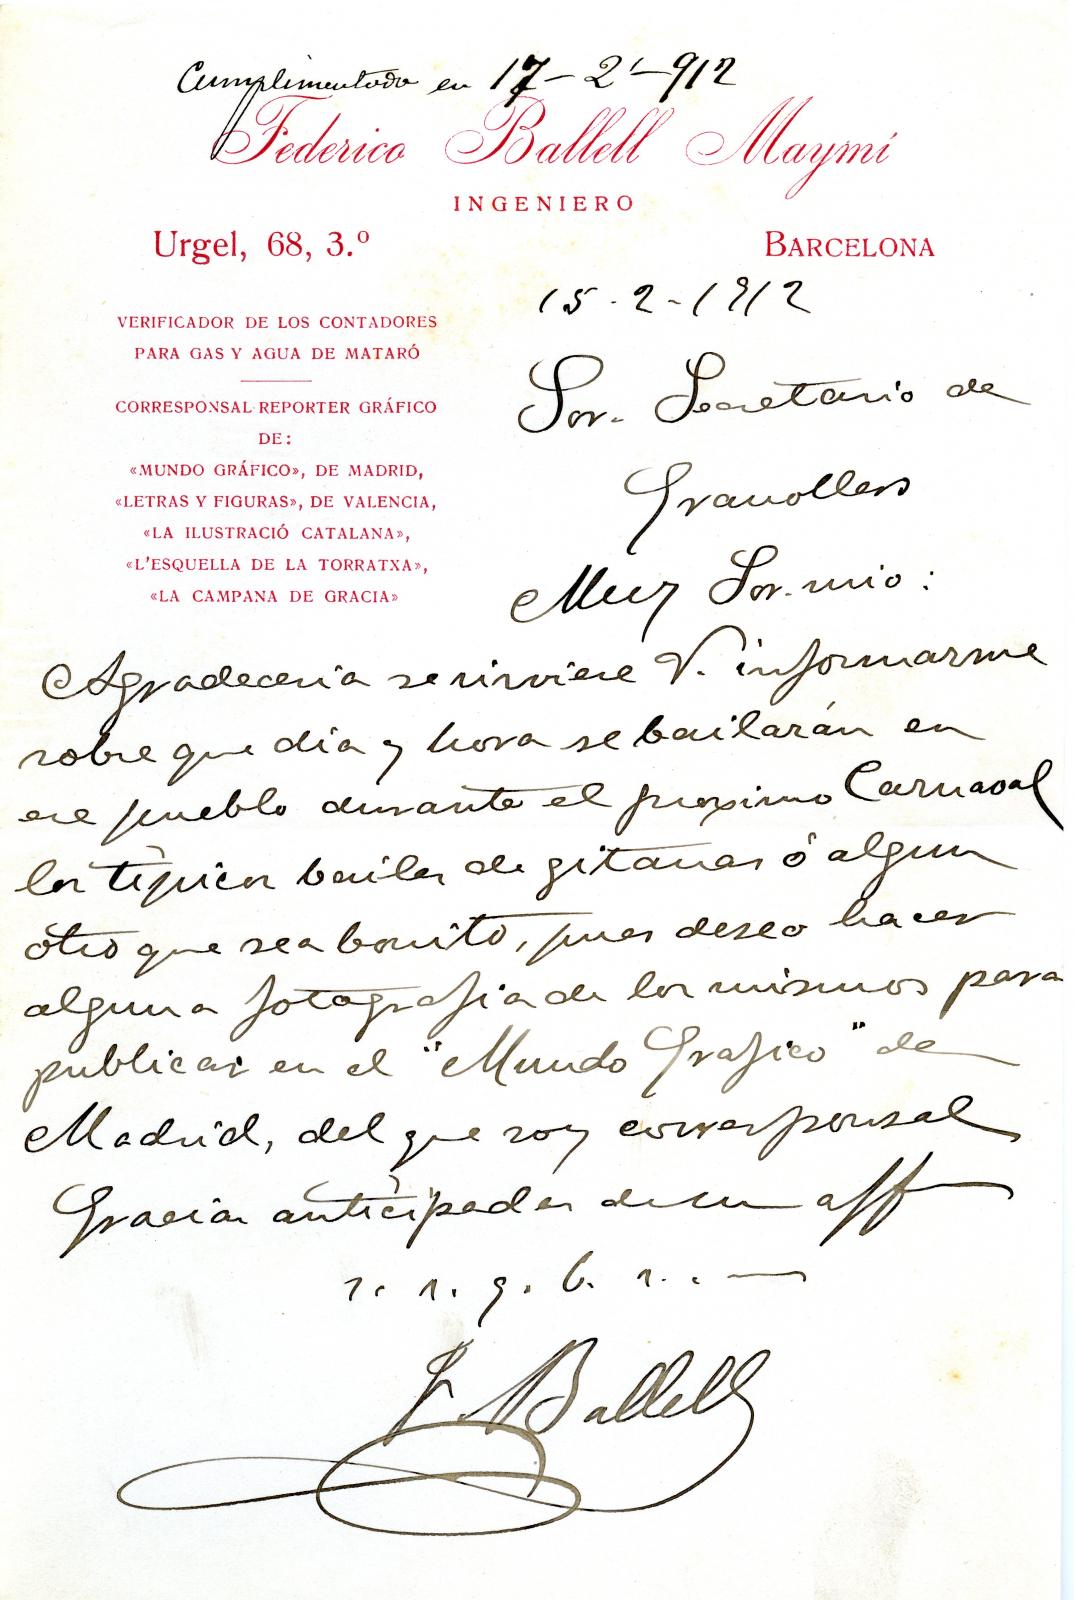 Cumplimentado en 17-2-912
Federico Ballell Maymí
INGENIERO
Urgel, 68, 3.º
BARCELONA
VERIFICADOR DE LOS CONTADORES
PARA GAS Y AGUA DE MATARÓ
CORRESPONSAL-REPORTER GRÁFICO
DE:
«MUNDO GRÁFICO», DE MADRID,
«LETRAS Y FIGURAS», DE VALENCIA,
«LA ILUSTRACIÓ CATALANA»,
«L'ESQUELLA DE LA TORRATXA»,
«LA CAMPANA DE GRACIA»
15-2-1912
Sor. Secretario de
Granollers
Muy Sor. mio:
Agradeceria se sirviese V. informarme
sobre que dia y hora se bailarán en
ese pueblo durante el proximo Carnaval
los típicos bailes de gitanas ó algun
otro que sea bonito, pues deseo hacer
alguna fotografia de los mismos para
publicar en el "Mundo Grafico" de
Madrid, del que soy corresponsal
Gracias anticipadas de su aff
s. s. q. b. s. .
F. Ballell